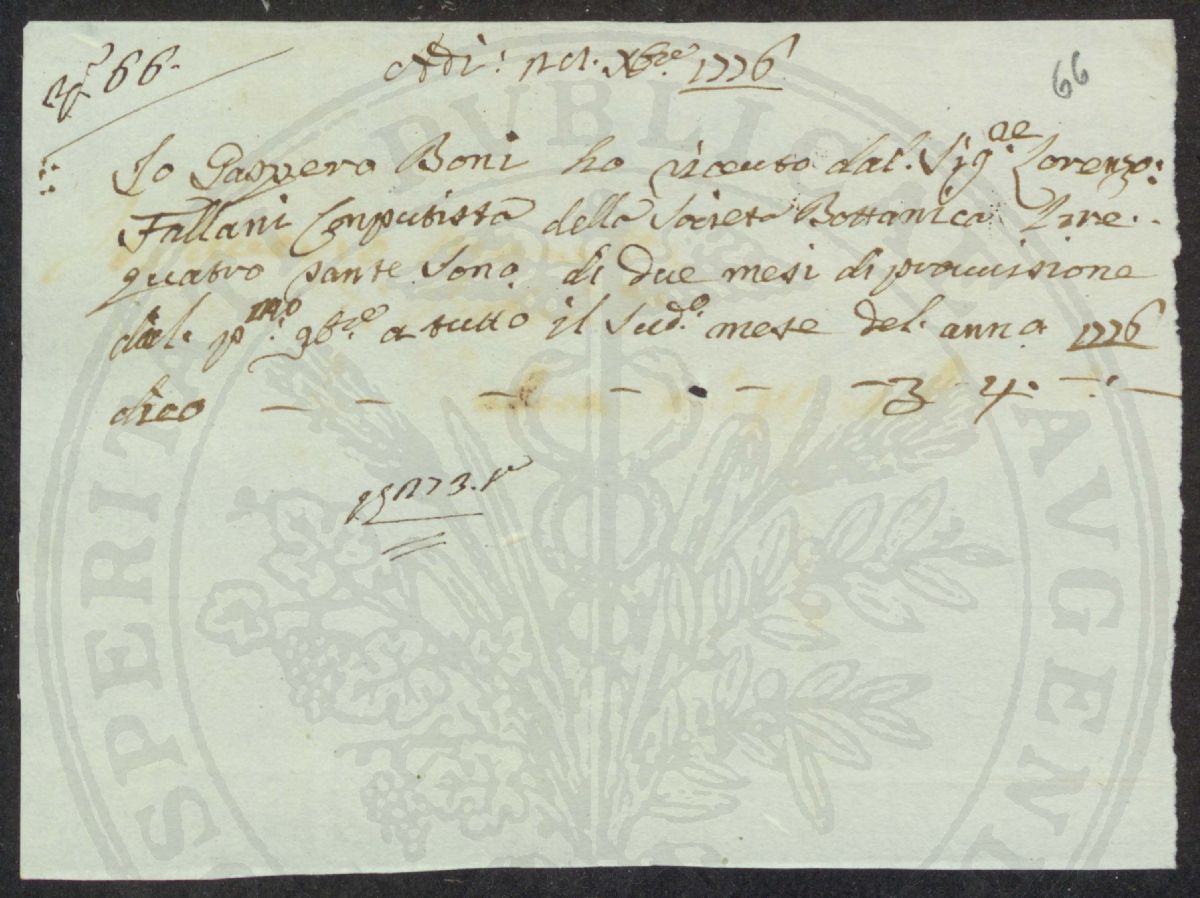 66.
Adi: Xbre. 1776
66
Io Gaspero Boni ho riceuto dal. Sigre. Lorenzo:
Fallani Conputista della Societa Bottanica Lire.
quatro sante Sono. di due mesi di prouisione
dal. pmo: 9bre. a tutto il Sudo. mese del. anno. 1776
dico — — — — — — — 4. — : —
PUBLICAE
AUGEND
SPERITA